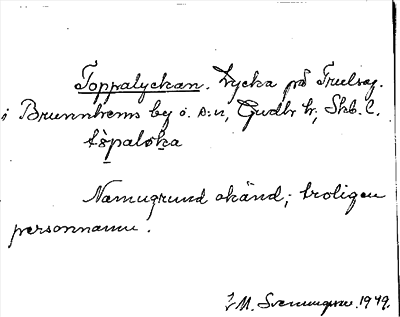 Toppalyckan. Lycka på Truelseg.
i Brunnhems by o. s:n, Gudh. h, Skb. l.
Namngrund okänd; troligen
personnamn.
J M. Svennungsson. 1949.